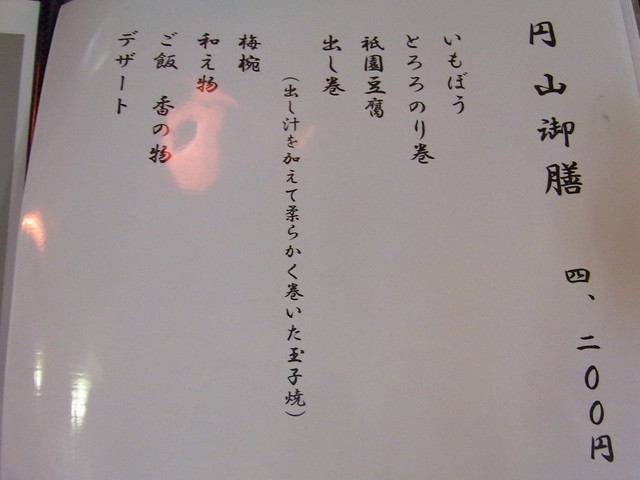 円山御膳 四、二〇〇円
いもぼう
とろろのり巻
祇園豆腐
出し巻
（出し汁を加えて柔らかく巻いた玉子焼）
梅椀
和え物
ご飯 香の物
デザート